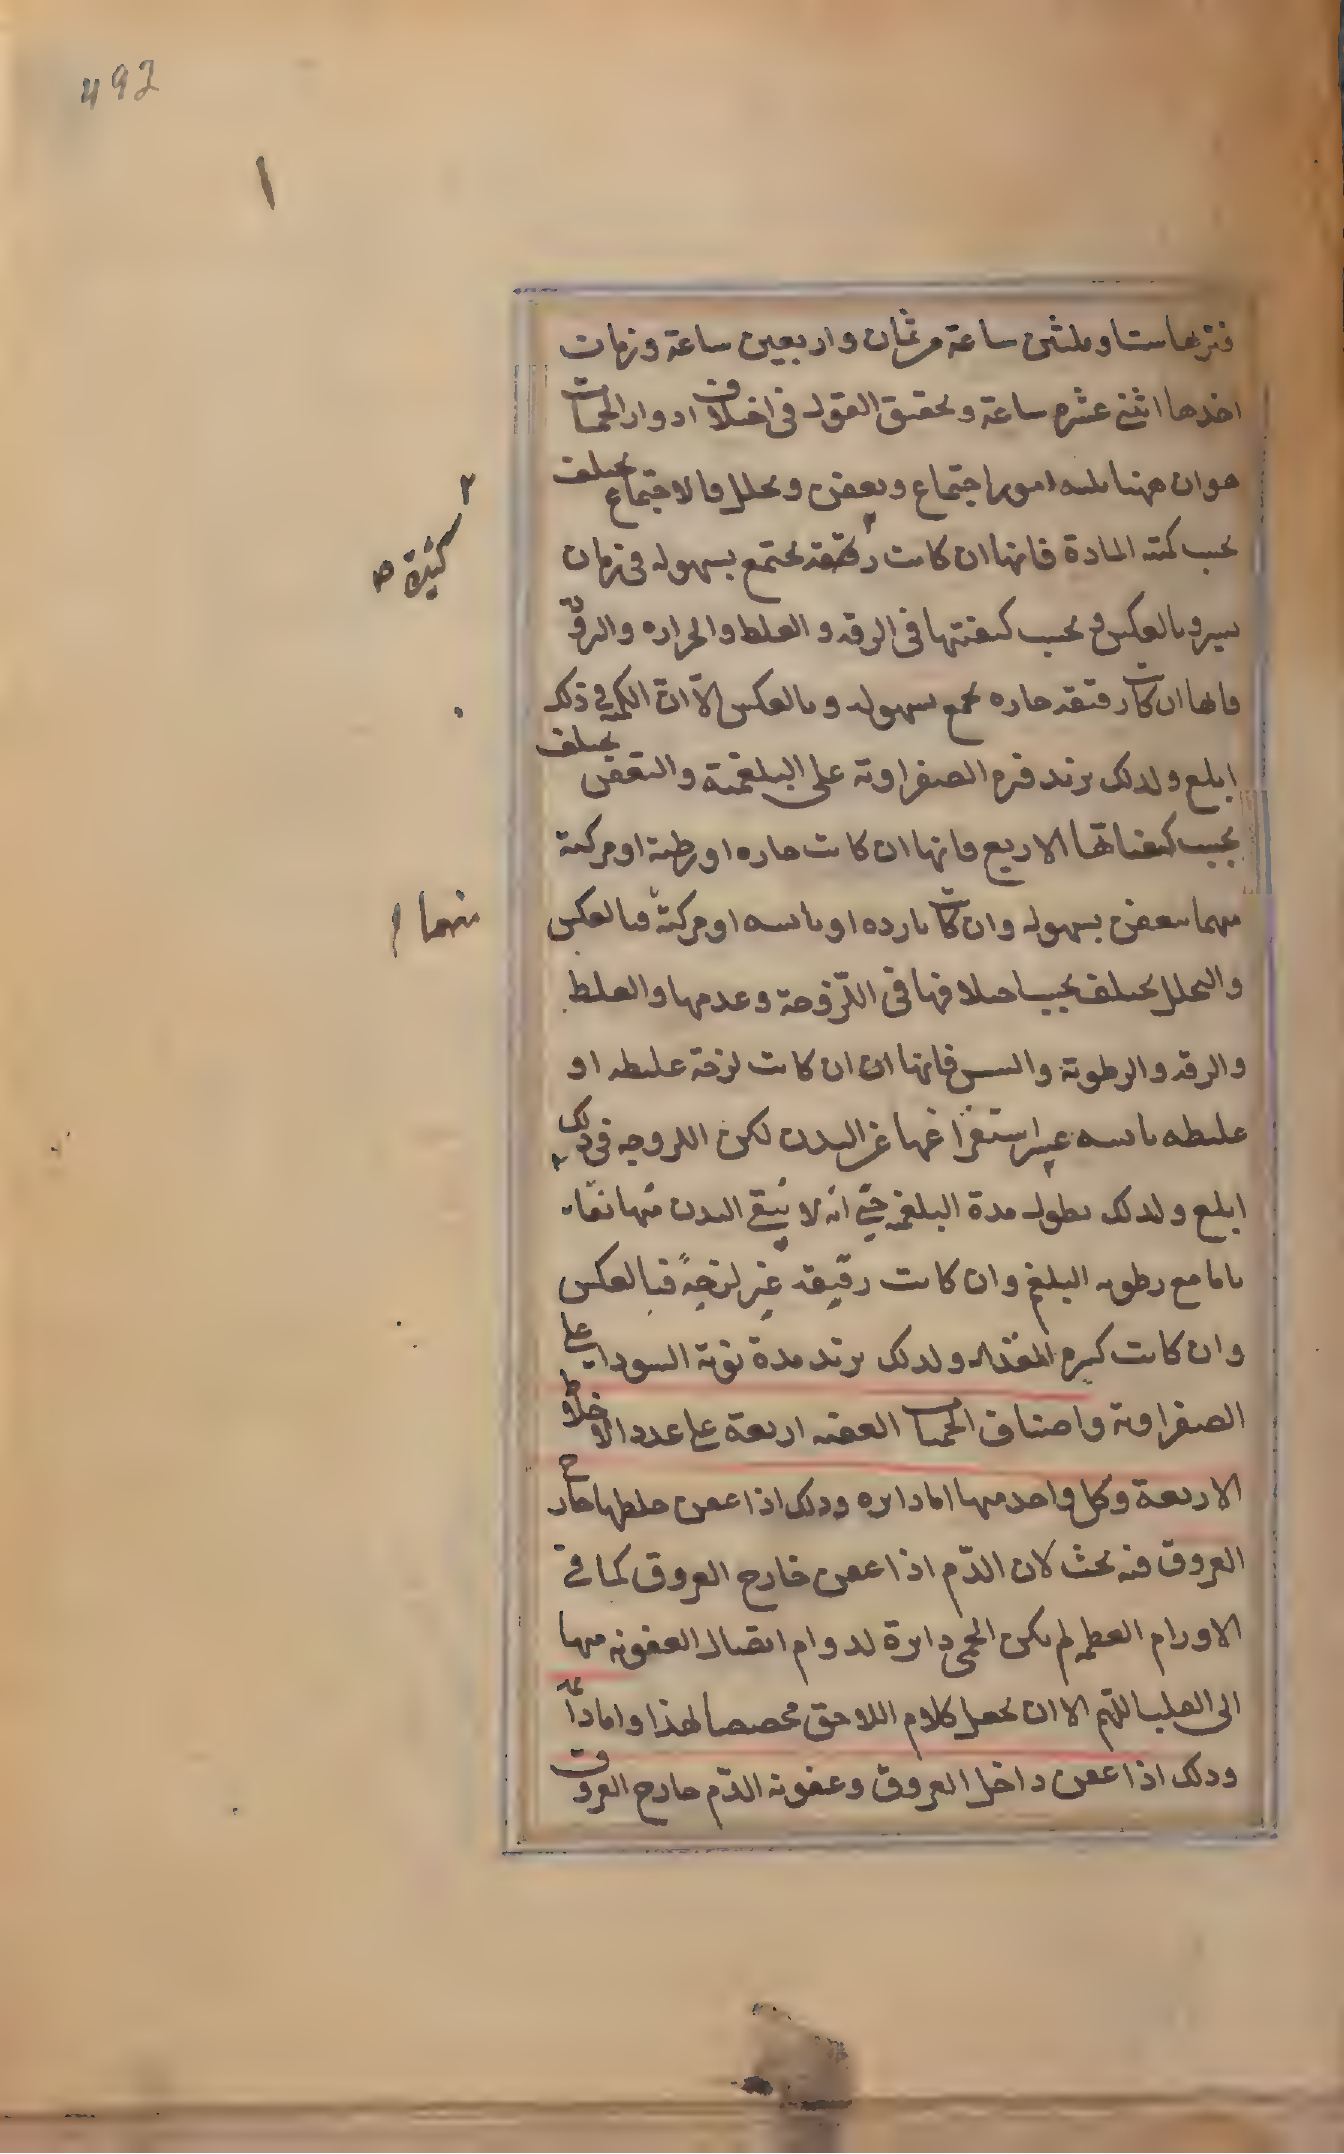 492
١
فترها ستا وثلثين ساعة من ثمان واربعين ساعة وزمان
اخذها اثنى عشره ساعة وتحقيق القول فى اختلاف ادوار الحميات
هو ان ههنا ثلثه امور اجتماع وتعفن وتحلل فالاجتماع يختلف
بحسب كميه المادة فانها ان كانت رقيقه تجتمع بسهوله فى زمان
كثيرة صح
يسير وبالعكس وبحسب كيفيتها فى الرقه والغلظ والحراره والبروده
فانها ان كانت رقيقه حاره تجمع بسهوله وبالعكس الّا انّ الكم فى ذلك
ابلغ ولذلك يزيد فتره الصفراويه على البلغمية والتعفن يختلف
بحسب كيفياتها الاربع فانها ان كانت حاره او رطبة او مركبة
منهما تتعفن بسهوله وان كانت بارده او يابسه او مركبة فبالعكس
منهما
والتحلل يختلف بحسب اختلافها فى اللزوجة وعدمها والغلظ
والرقه والرطوبة واليبس فانها ان ان كانت لزجة غليظه او
غليظه يابسه عسر استفراغها عن البدن لكن اللزوجه فى ذلك
ابلغ ولذلك يطول مدة البلغميه حتى انه لا ينقى البدن منها نقاء
تاما مع رطوبه البلغم وان كانت رقيقه غير لزجة فبالعكس
وان كانت كثيره المقدار ولذلك يزيد مدة نوبة السوداويه على
الصفراويه واصناف الحميات العفنه اربعة على عدد الاخلاط
الاربعة وكل واحد منها اما دايره وذلك اذا عفن خلطها خارج
العروق فيه بحث لان الدّم اذا عفن خارج العروق كما فى
الاورام العظيمه لم يكن الحمى دايرة لدوام اتصال العفونه منها
الى القلب اللهم الا ان يجعل كلام اللاحق مخصصا لهذا واما دائمه
وذلك اذا عفن داخل العروق وعفونه الدّم خارج العروق